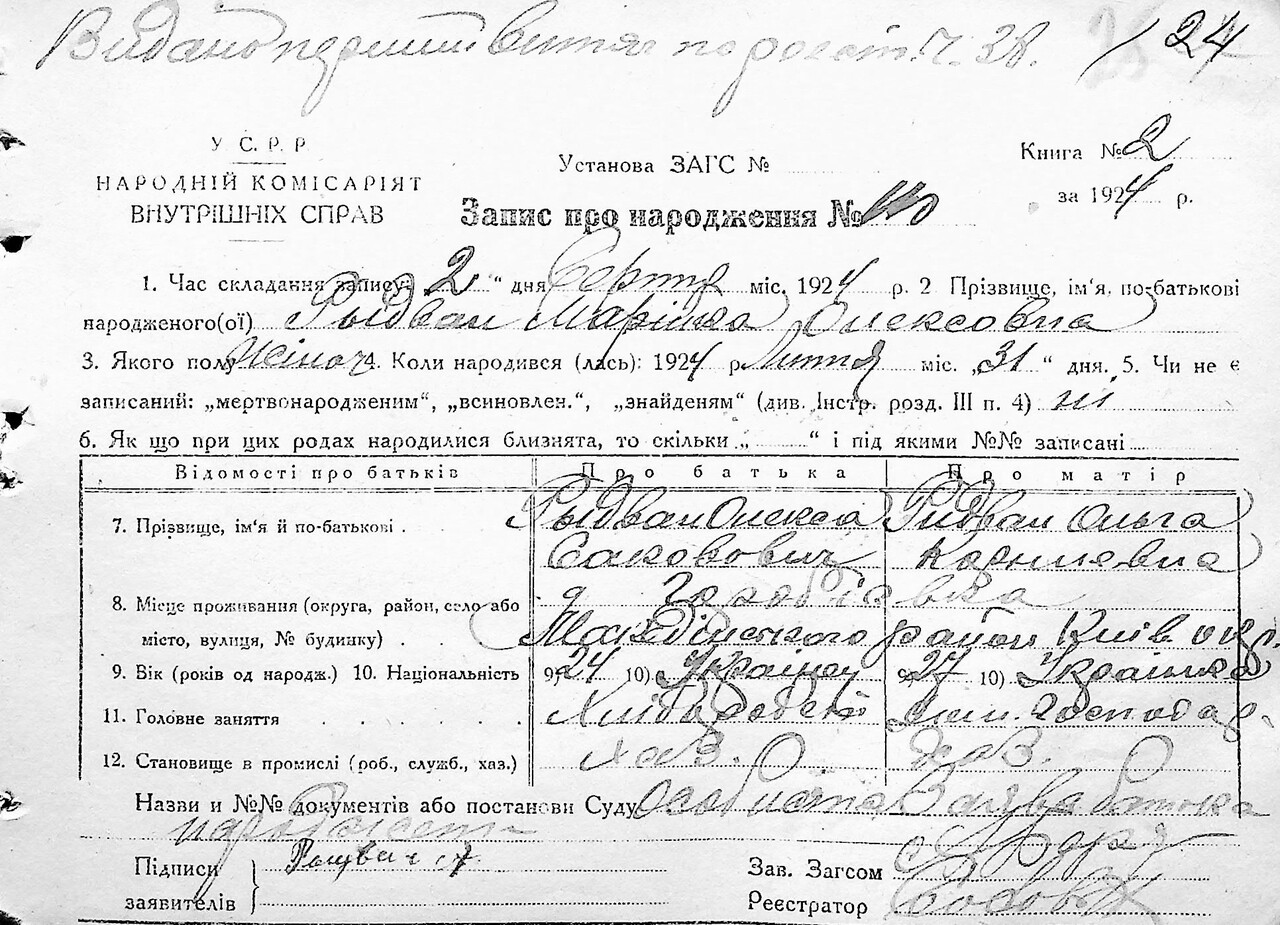 Видано перший витяг по реєст. Ч. 38.
24
У. С. Р. Р
НАРОДНІЙ КОМІСАРІЯТ
ВНУТРІШНІХ СПРАВ
Установа ЗАГС №
Книга № 2
за 1924 р.
Запис про народження № 110
1. Час складання запису: „2“ дня Серпня міс. 1924 р. 2 Прізвище, ім'я, по-батькові
народженого(ої) Рыдван Марійка Олексовна
3. Якого полу Жіноч 4. Коли народився (лась): 1924 р. Липня міс. „31“ дня. 5. Чи не є
записаний: „мертвонародженим“, „всиновлен.“, „знайденям“ (див. Інстр. розд. III п. 4) ні
6. Як що при цих родах народилися близнята, то скільки „ “ і під якими №№ записані
Відомості про батьків Про батька Про матір
7. Прізвище, ім'я й по-батькові . Рыдван Олекса Ридван Ольга
Сакович Корниевна
8. Місце проживання (округа, район, село або
місто, вулиця, № будинку) . района Київ окр.
9. Вік (років од народж.) 10. Національність 9) 24 10) Українец 9) 27 10) Українка
11. Головне заняття . . . . . Хліборобство дом. господар.
12. Становище в промислі (роб., служб., хаз.) хаз. хаз.
Назви и №№ документів або постанови Суду Особиста Заява батька
Підписи
заявителів
Зав. Загсом
Реєстратор